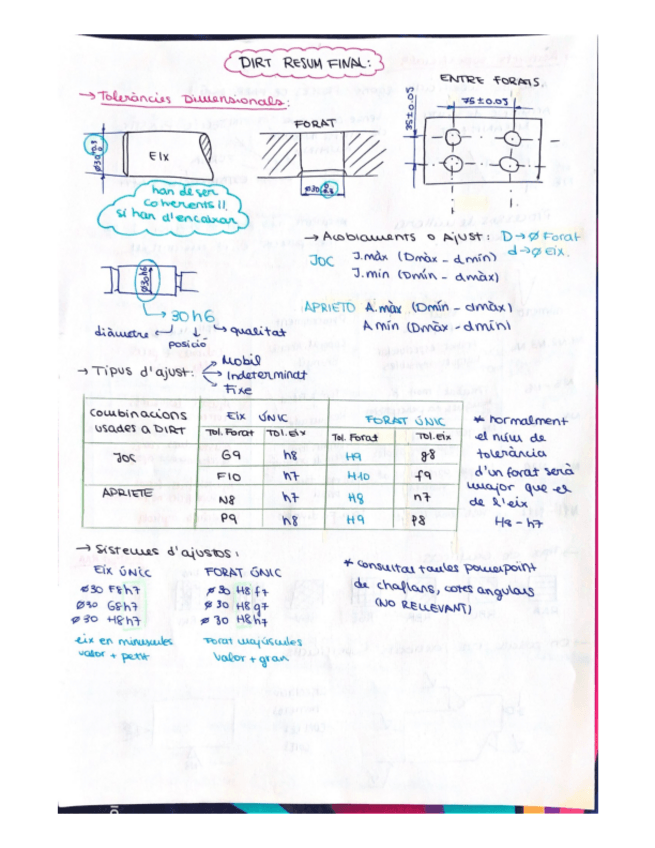 DIRT RESUM FINAL:
→ Toleràncies Dimensionals:
ENTRE FORATS.
75±0.05
35±0.05
FORAT
EIX
han de ser
coherents!!,
si han d'encaixar
→ Acoblaments o Ajust: D→ø Forat
d→ø Eix.
JOC J.màx (Dmàx - dmín)
J.min (Dmín - dmàx)
ø30h6
→ 30h6
diàmetre posició qualitat
APRIETO A.màx (Dmín - dmàx)
A.mín (Dmàx - dmín)
→ Tipus d'ajust: Mobil
Indeterminat
Fixe
Combinacions usades a DIRT EIX ÚNIC FORAT ÚNIC
Tol. Forat Tol. Eix Tol. Forat Tol. Eix
JOC G9 h8 H9 g8
F10 h7 H10 f9
APRIETE N8 h7 H8 n7
P9 h8 H9 p8
* normalment
el núm de
tolerància
d'un forat serà
major que el
de l'eix
H8 - h7
→ Sistemes d'ajustos:
EIX ÚNIC FORAT ÚNIC
ø30 F8h7 ø30 H8f7
ø30 G8h7 ø30 H8g7
ø30 H8h7 ø30 H8h7
eix en minúscules Forat majúscules
valor + petit valor + gran
* consultar taules powerpoint
de chaflans, cotes angulars
(NO RELLEVANT)